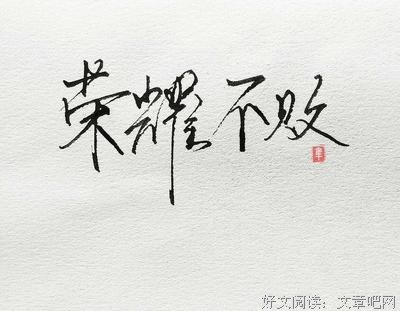 荣耀不败
好文阅读：文章吧网